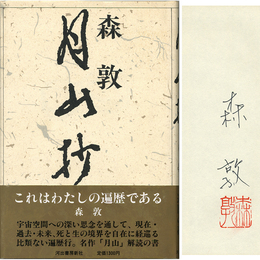 森敦
月山抄
これはわたしの遍歴である
森 敦
宇宙空間への深い思念を通して、現在・
過去・未来、死と生の境界を自在に経巡る
比類ない遍歴行。名作「月山」解読の書
河出書房新社
定価1300円
森敦